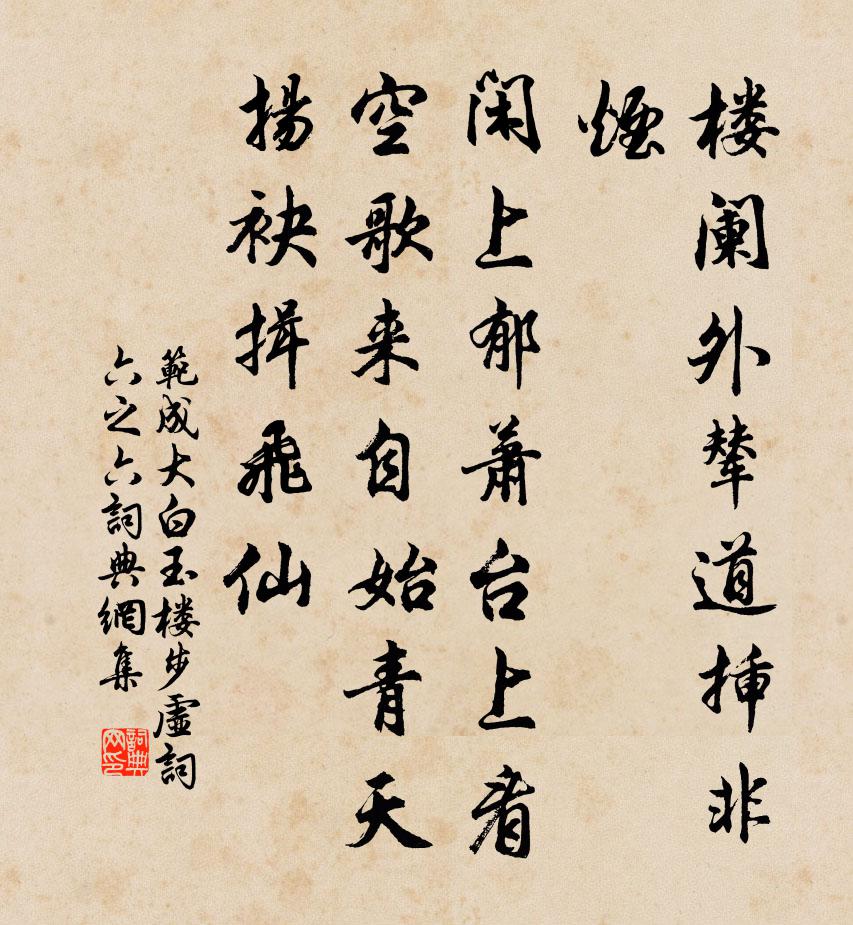 楼阑外辇道插非
烟
闲上郁萧台上看
空歌来自始青天
扬袂揖飛仙
範成大白玉楼步虛詞
六之六詞典網集
詞典
网印